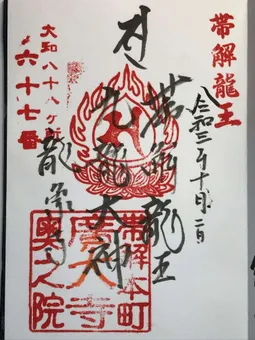 帯解龍王
八 令和三年十月二日
奉
帯解龍王
九龍大神
龍象寺
大和八十八ヶ所
六十七番
帯解本町
廣大寺
奥之院